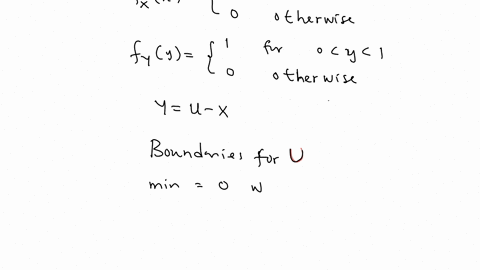 0 otherwise
f_Y(y) = { 1 for 0 < y < 1
0 otherwise
Y = U - X
Boundaries for U
min = 0 w